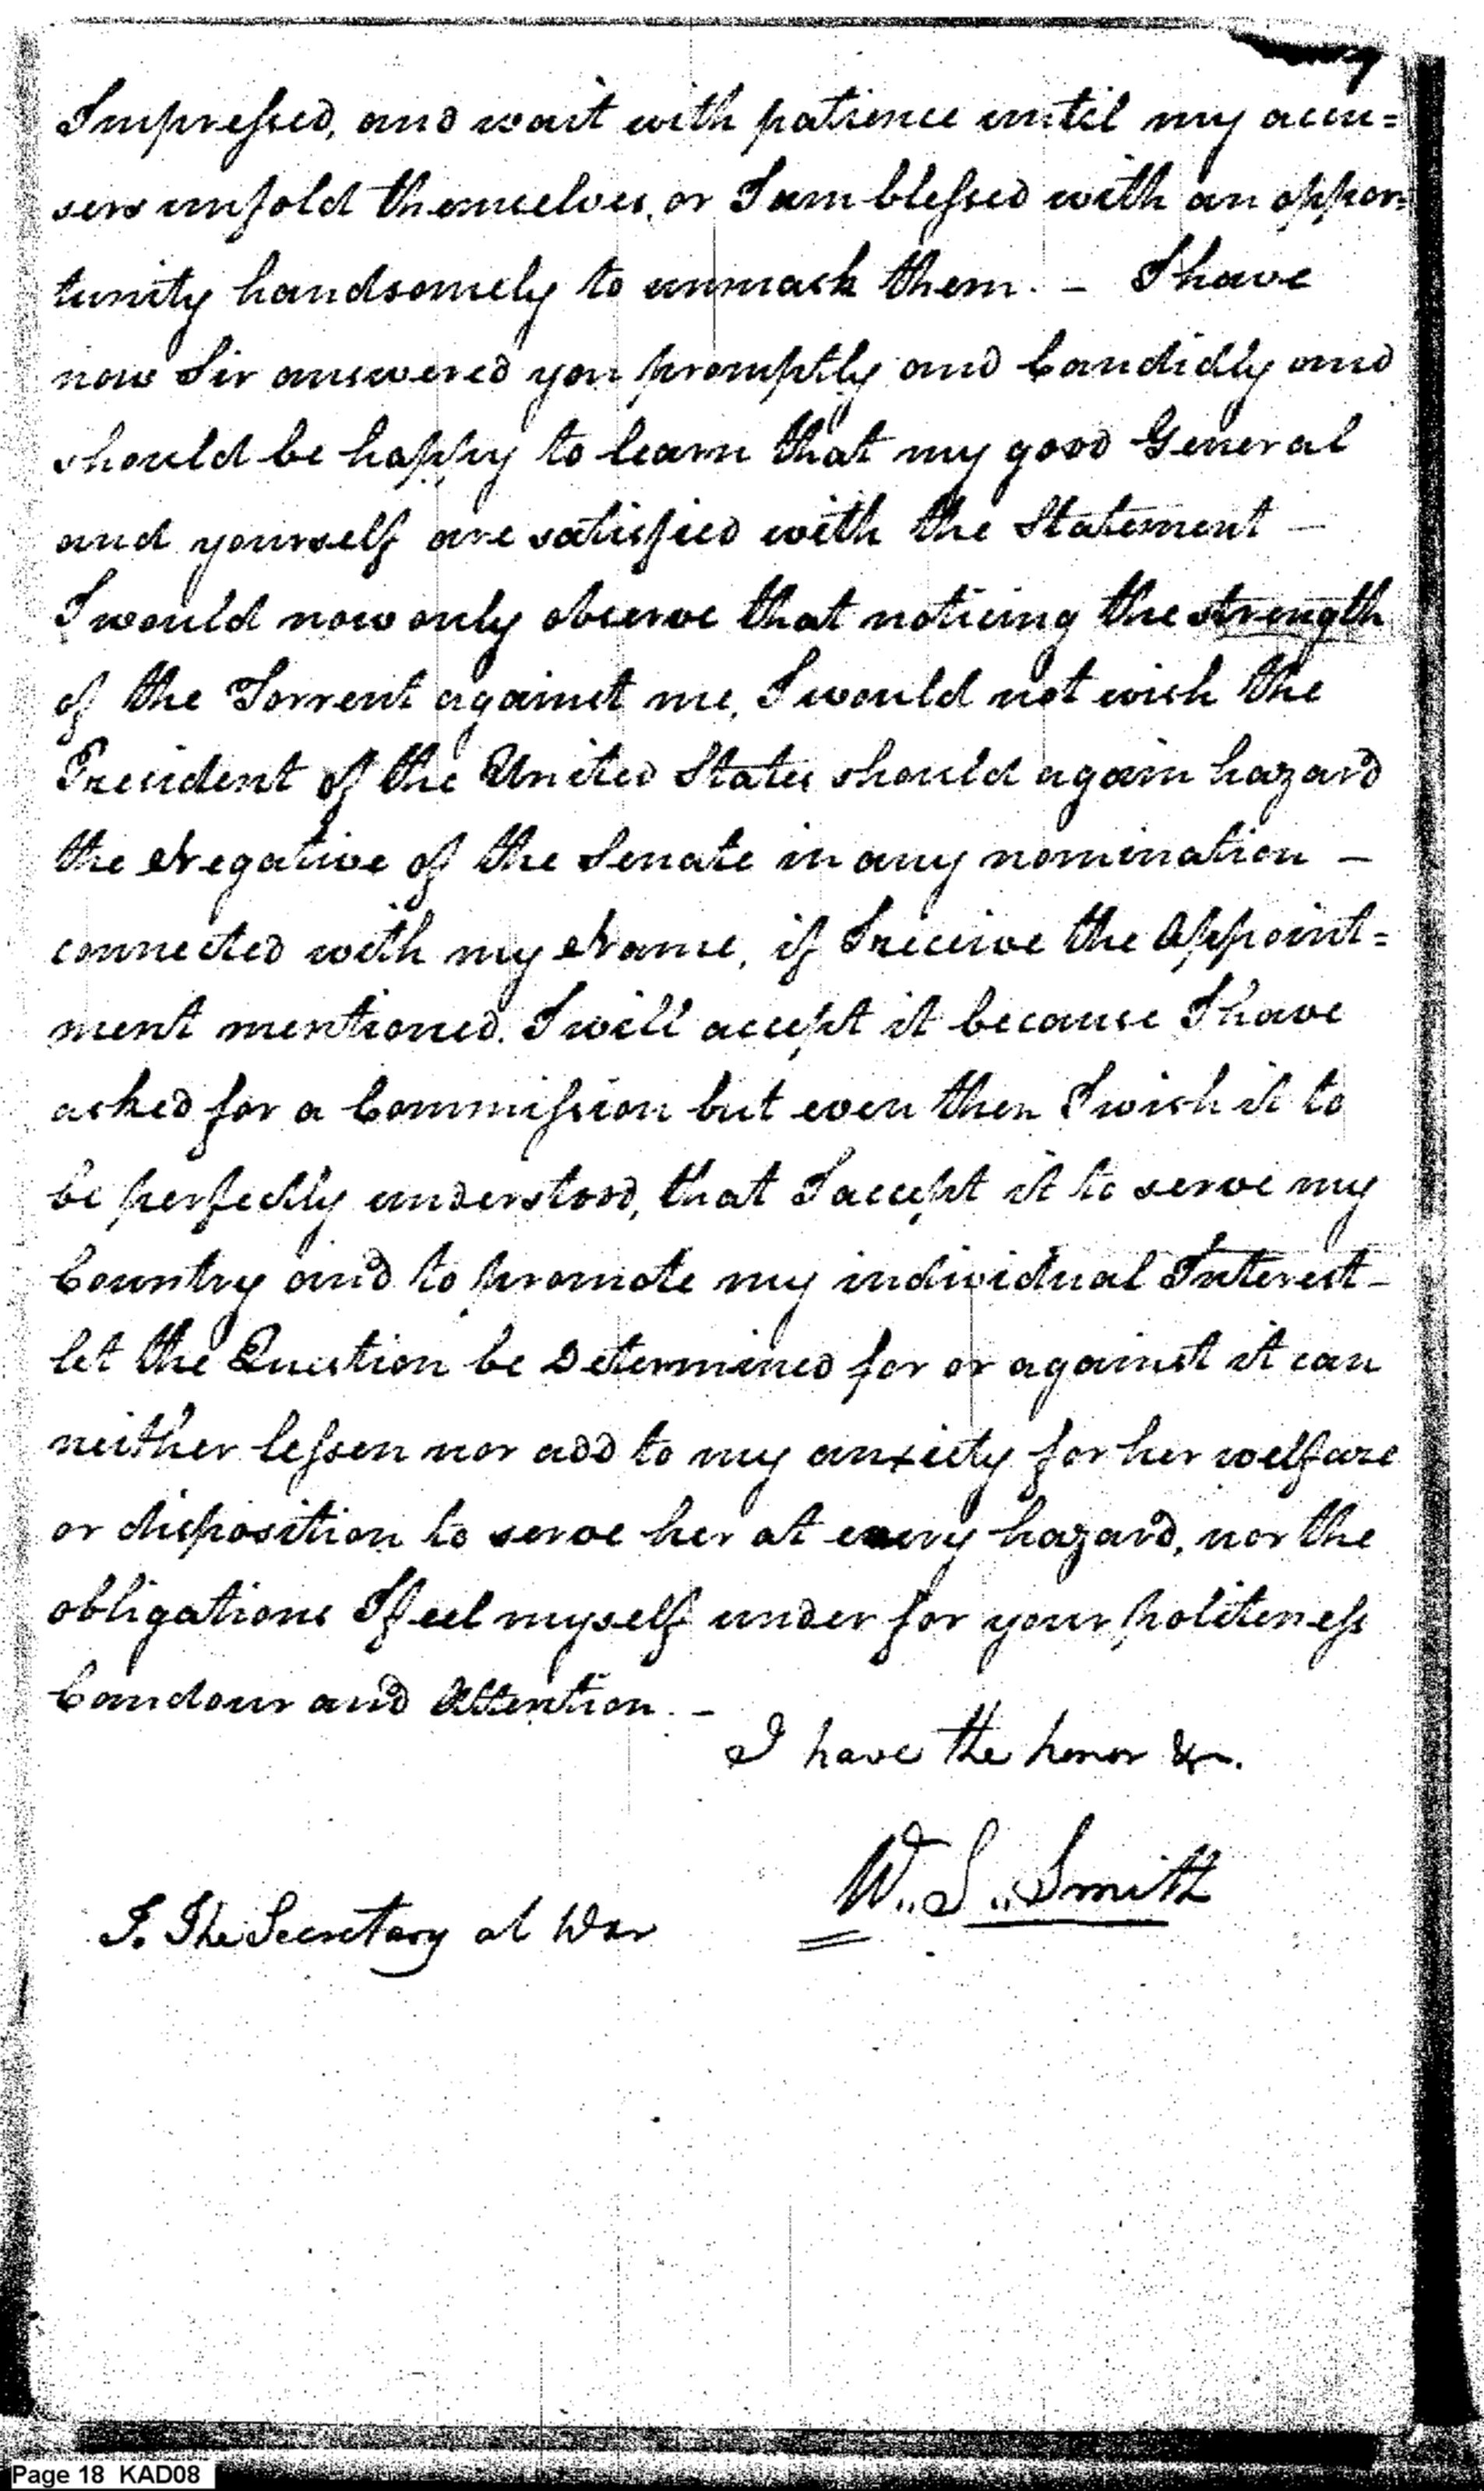 Impressed, and wait with patience until my accu=
sers unfold themselves, or I am blessed with an oppor=
tunity handsomely to unmask them. – I have
now Sir answered you promptly and Candidly and
should be happy to learn that my good General
and yourself are satisfied with the Statement –
I would now only observe that noticing the strength
of the Torrent against me, I would not wish the
President of the United States should again hazard
the Negative of the Senate in any nomination –
connected with my Name, if I receive the Appoint=
ment mentioned. I will accept it because I have
asked for a Commission but even then I wish it to
be perfectly understood, that I accept it to serve my
Country and to promote my individual Interest –
let the Question be Determined for or against it can
neither lessen nor add to my anxiety for her welfare
or disposition to serve her at every hazard, nor the
obligations I feel myself under for your politeness
Candour and Attention. –
I have the honor &c.
W. S. Smith
To The Secretary at War
Page 18 KAD08